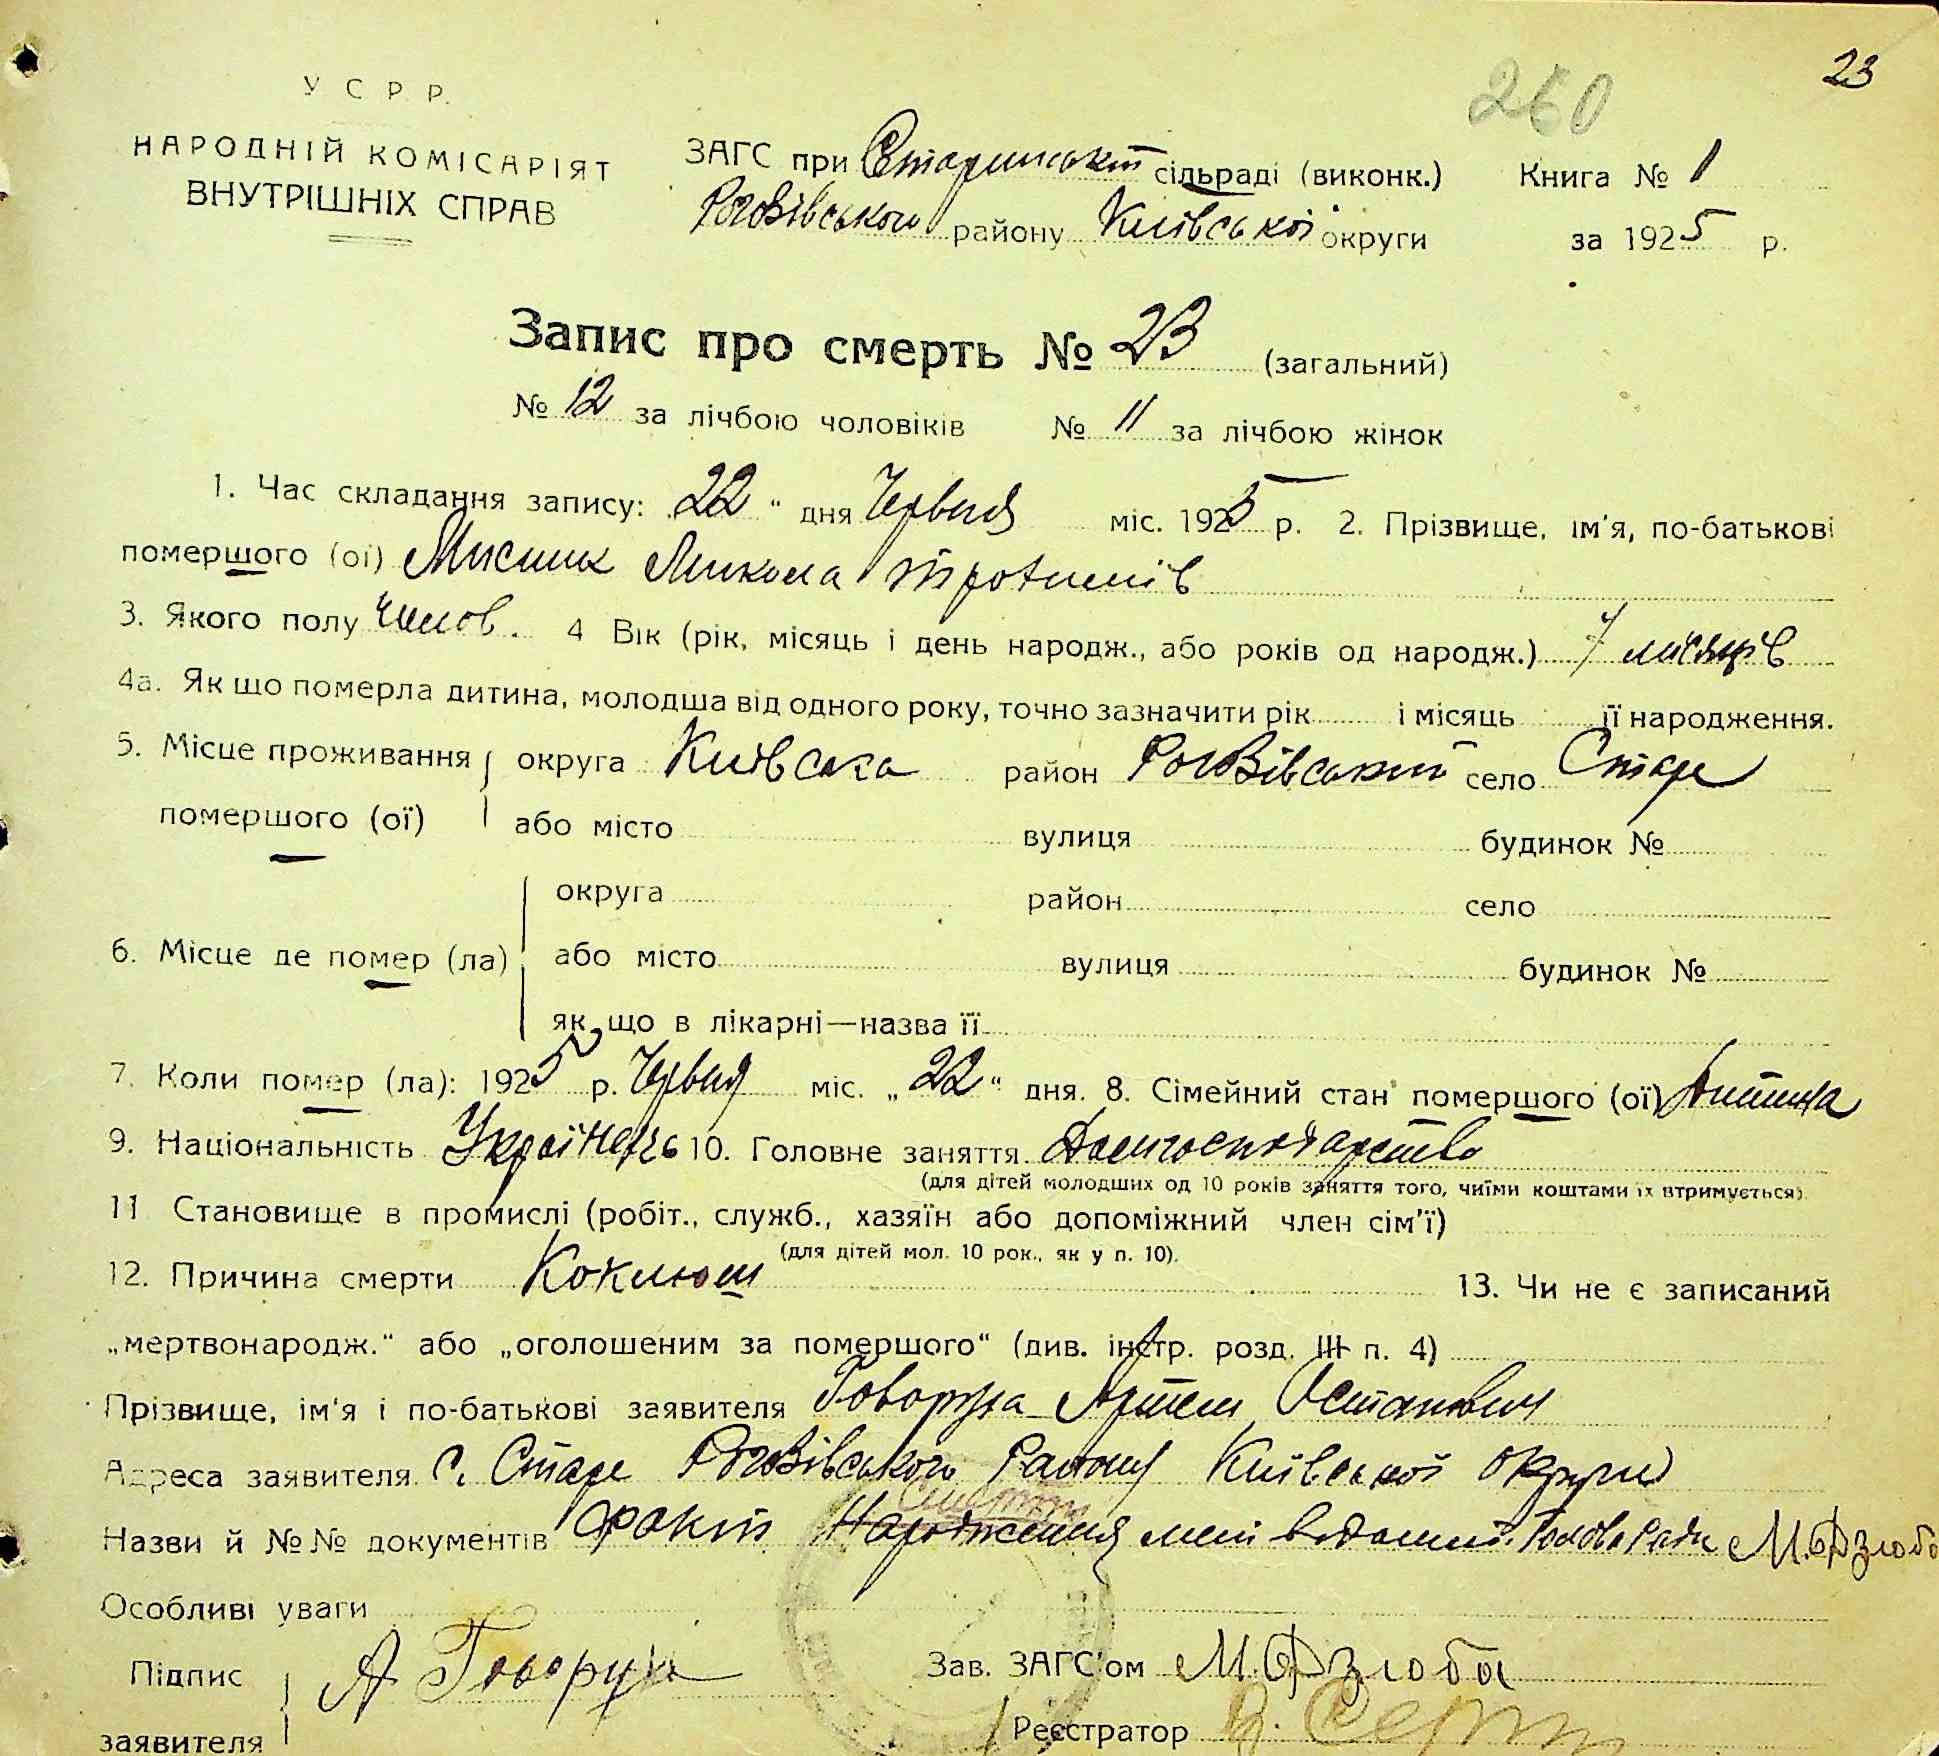 23
260
У С Р Р.
НАРОДНІЙ КОМІСАРІЯТ
ВНУТРІШНІХ СПРАВ
ЗАГС при Старинській сільраді (виконк.) Книга № 1
Рогозівського району Київської округи за 1925 р.
Запис про смерть № 23 (загальний)
№ 12 за лічбою чоловіків № 11 за лічбою жінок
1. Час складання запису: 22 " дня Червня міс. 1925 р. 2. Прізвище, ім'я, по-батькові
помершого (ої) Микола
3. Якого полу Чолов. 4 Вік (рік, місяць і день народж., або років од народж.) 7 місяців
4а. Як що померла дитина, молодша від одного року, точно зазначити рік і місяць її народження.
5. Місце проживання округа Київська район Рогозівський село Старе
помершого (ої) або місто вулиця будинок №
округа район село
6. Місце де помер (ла) або місто вулиця будинок №
як що в лікарні—назва її
7. Коли помер (ла): 1925 р. Червня міс. „ 22 " дня. 8. Сімейний стан помершого (ої) Дитина
9. Національність Українець 10. Головне заняття
(для дітей молодших од 10 років заняття того, чиїми коштами їх втримується)
11 Становище в промислі (робіт., служб., хазяїн або допоміжний член сім'ї)
(для дітей мол. 10 рок., як у п. 10).
12. Причина смерти Коклюш 13. Чи не є записаний
„мертвонародж." або „оголошеним за помершого" (див. інстр. розд. III п. 4)
Прізвище, ім'я і по-батькові заявителя Говоруха Артем Остапович
Адреса заявителя С. Старе Рогозівського Району Київської округи
Смерти
Назви й №№ документів Факт Народження мені відомий. Голова Ради М. Дзюба
Особливі уваги
Підпис А Говоруха Зав. ЗАГС'ом М. Дзюба
заявителя Реєстратор